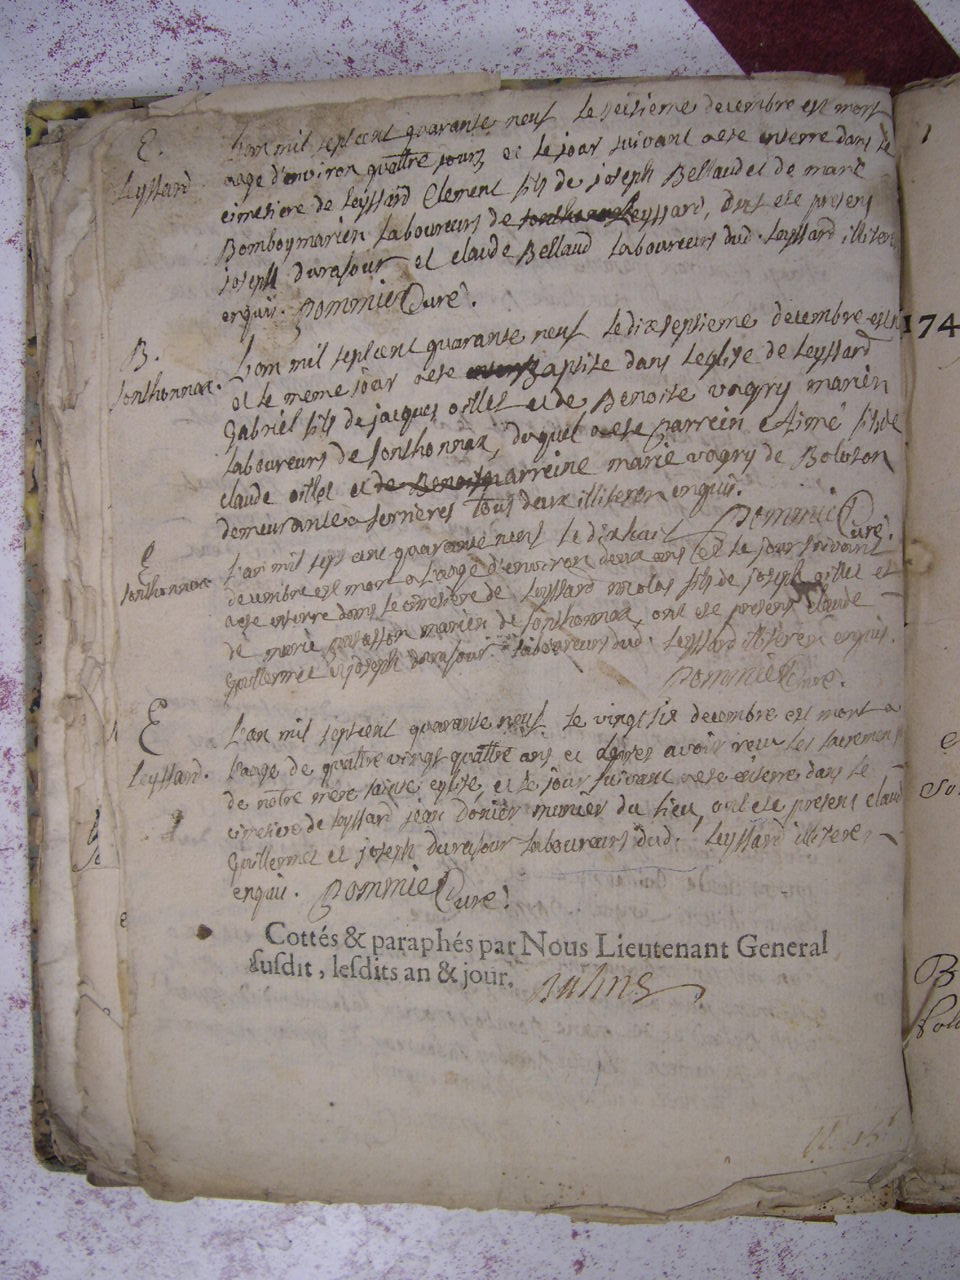 E.
Leyssard.
L'an mil sept cent quarante neuf le seisieme decembre est mort
aagé d'environ quattre jours et le jour suivant a esté enterré dans le
cimetiere de Leyssard Clement fils de joseph Bellaud et de marie
Bomboy mariën laboureurs de Leyssard, ont esté presens
joseph durafour et claude Bellaud laboureurs dud. Leyssard illiteré
enquis. Pommier Curé.
B.
Sonthonnax.
L'an mil sept cent quarante neuf le dixseptieme decembre est né
et le meme jour a esté baptisé dans l'eglise de Leyssard
Gabriël fils de jacques oillet et de Benoite vogry mariën
laboureurs de Sonthonnax, duquel a esté parrein Aimé fils de
claude oillet et marreine marie vogry de Boloson
demeurante a serrieres tous deux illiteren enquis.
Pommier Curé.
E
Sonthonnax
L'an mil sept cent quarante neuf le dixhuit
decembre est mort a l'aagé d'environ deux ans et le jour suivant
a esté enterré dans le cimetiere de Leyssard nicolas fils de joseph oillet et
de marie mariën de Sonthonnax, ont esté presens claude
Guillermet et joseph durafour laboureurs dud. Leyssard illiteren enquis.
Pommier Curé.
E
Leyssard.
L'an mil sept cent quarante neuf le vingt six decembre est mort a
l'aage de quattre vingt quattre ans et apres avoir receu les sacremens
de nôtre mere sainte eglise, et le jour suivant a esté enterré dans le
cimetiere de Leyssard jean donier munier du lieu, ont esté presens claude
Guillermet et joseph durafour laboureurs dud. Leyssard illiteren
enquis. Pommier Curé.
Cottés & paraphés par Nous Lieutenant General
susdit, lesdits an & jour.
174